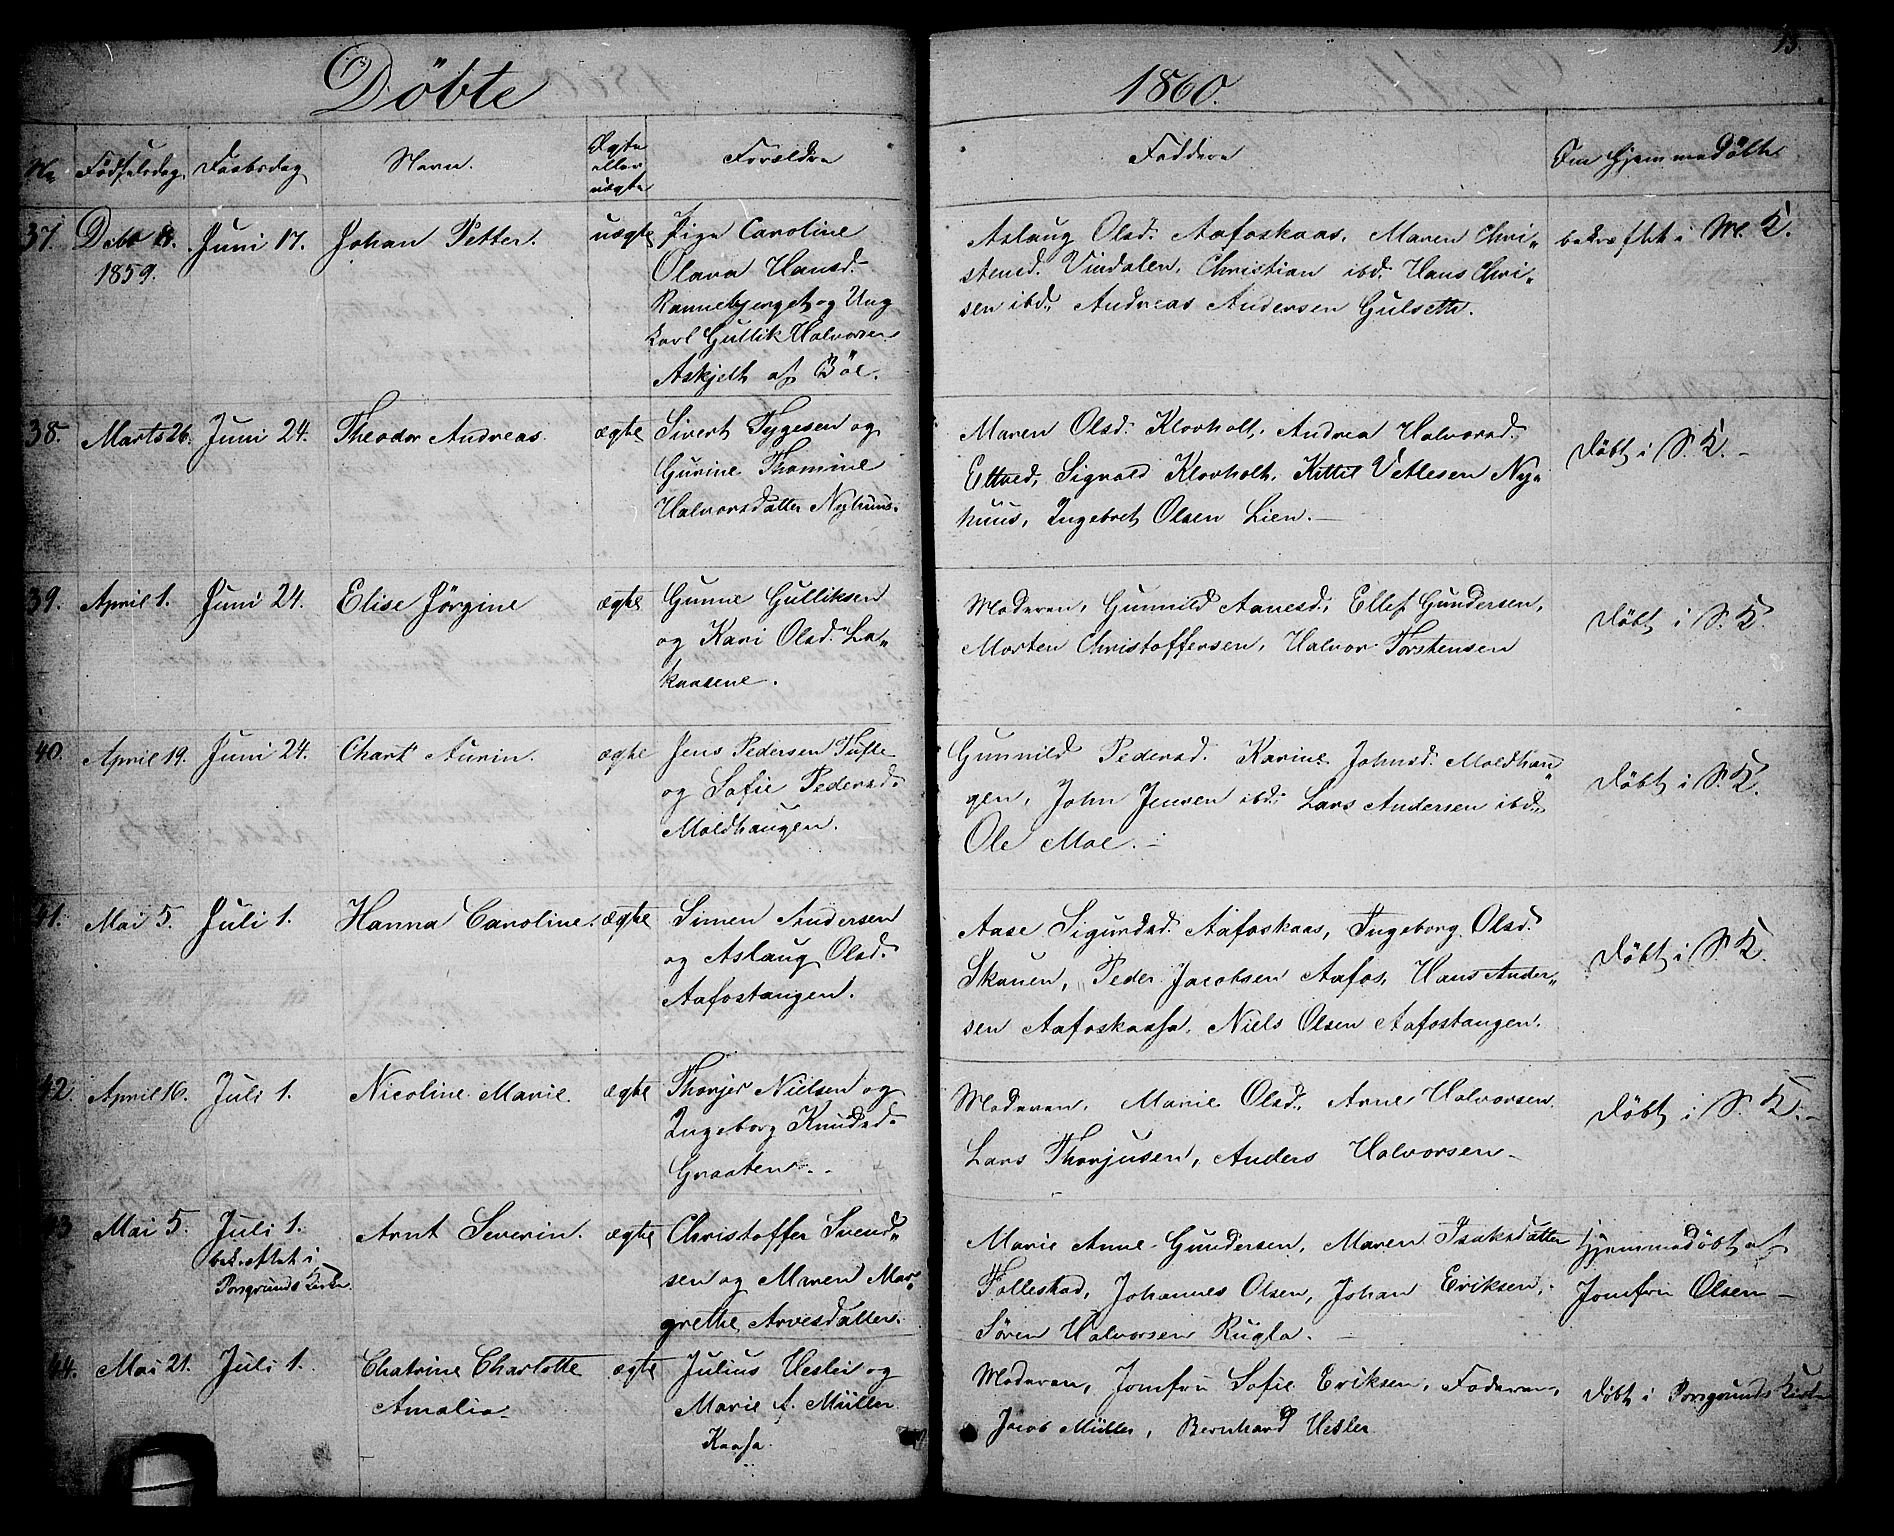 Döbte
1860.
No Födselsdag. Daabsdag Navn. Ægte eller uægte Forældre Faddere Om hjemmedöbt
37. 1859. Juni 17. Johan Petter. uægte Pige Caroline
Olava Hansd.
Rannebjerget og Ung
karl Gullik Halvorsen
Askjelt af Böe.
Aslaug Olsd. Aafoskaas, Maren Chri„
stensd. Vindalen, Christian ibd. Hans Chri„
sen ibd. Andreas Andersen Gulseth.
bekræftet i M. K.
38. Marts 26. Juni 24. Theodor Andreas. ægte Sivert Tygesen og
Gurine Thomine
Halvorsdatter Nyhuus.
Maren Olsd. Klovholt, Andrea Halvorsd.
Eltved, Sigvald Klovholt, Kittil Vetlesen Ny„
huus, Ingebret Olsen Lien.
Döbt i S. K.
39. April 1. Juni 24. Elise Jörgine ægte Gunne Gulliksen
og Kari Olsd. La„
kaasene.
Moderen, Gunnild Aanesd., Ellef Gundersen,
Morten Christoffersen, Halvor Torstensen
Döbt i S. K.
40. April 19. Juni 24. Chart Aurin. ægte Jens Pedersen Tufte
og Sofie Pedersd.
Moldhaugen.
Gunnild Pedersd. Karine Johnsd. Moldhau„
gen, John Jensen ibd. Lars Andersen ibd.
Ole Moe.
Döbt i S. K.
41. Mai 5. Juli 1. Hanna Caroline. ægte Simen Andersen
og Aslaug Olsd.
Aafostangen.
Aase Sigurdsd. Aafoskaas, Ingeborg Olsd.
Skauen, Peder Jacobsen Aafos, Hans Ander„
sen Aafoskaasa, Niels Olsen Aafostangen.
Döbt i S. K.
42. April 16. Juli 1. Nicoline Marie. ægte Thorjer Nielsen og
Ingeborg Knudsd.
Graaten.
Moderen, Marie Olsd., Arne Halvorsen
Lars Thorjusen, Anders Halvorsen
Döbt i S. K.
43 Mai 5. Juli 1. Arnt Severin. ægte Christoffer Svend„
bekræftet i
Porsgrunds Kirke.
sen og Maren Mar„
grethe Arvesdatter.
Marie Anne Gundersen, Maren Isaksdatter
Follestad, Johannes Olsen, Johan Eriksen,
Sören Halvorsen Rugla.
Hjemmedöbt af
Jomfru Olsen
44. Mai 21. Juli 1. Chatrine Charlotte ægte Julius Hesler og
Amalia
Marie f. Müller
Kaasa.
Moderen, Jomfru Sofie Eriksen, Faderen,
Jacob Müller, Bernhard Hesler
Döbt i Porsgrunds Kirke